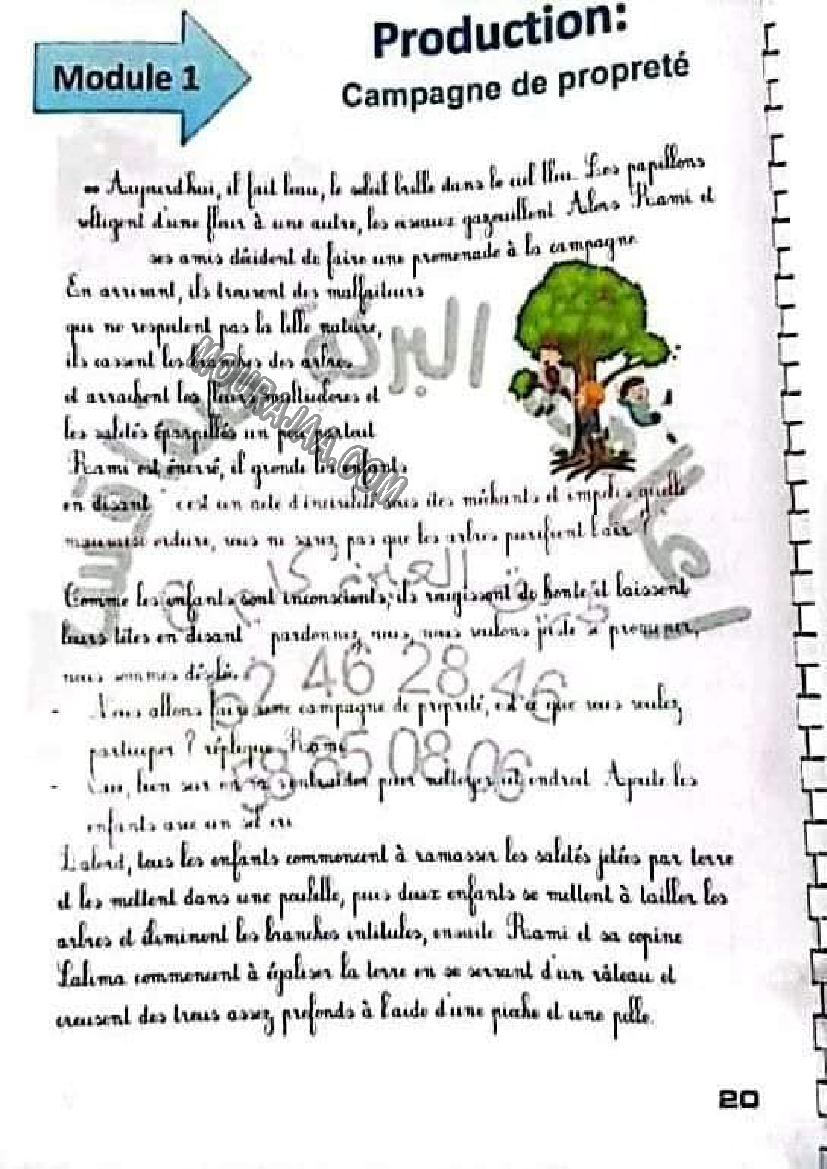 Module 1
Production:
Campagne de propreté
Aujourd'hui, il fait beau, le soleil brille dans le ciel bleu. Les papillons
voltigent d'une fleur à une autre, les oiseaux gazouillent. Alors Rami et
ses amis décident de faire une promenade à la campagne
En arrivant, ils trouvent des malfaiteurs
qui ne respectent pas la belle nature,
ils cassent les branches des arbres
et arrachent les fleurs et
les saletés éparpillés un peu partout
Rami est énervé, il gronde les enfants
en disant " c'est un acte d'incivilité vous êtes méchants et impolis quelle
mauvaise ordure, vous ne savez pas que les arbres purifient l'air ?
Comme les enfants sont inconscients, ils rougissent de honte et baissent
leurs têtes en disant " pardonnez nous, nous voulons juste se
nous sommes désolés "
- Nous allons faire une campagne de propreté, est ce que vous voulez
participer ? réplique Rami
- Oui, bien sur on va pour nettoyer cet endroit Ajoute les
enfants avec un
D'abord, tous les enfants commencent à ramasser les saletés jetées par terre
et les mettent dans une poubelle, puis deux enfants se mettent à tailler les
arbres et éliminent les branches inutiles, ensuite Rami et sa copine
commencent à égaliser la terre en se servant d'un râteau et
creusent des trous assez profonds à l'aide d'une pioche et une pelle.
20
MOURAJAA.COM
البركة
52 46 28 46
58 85 08 06